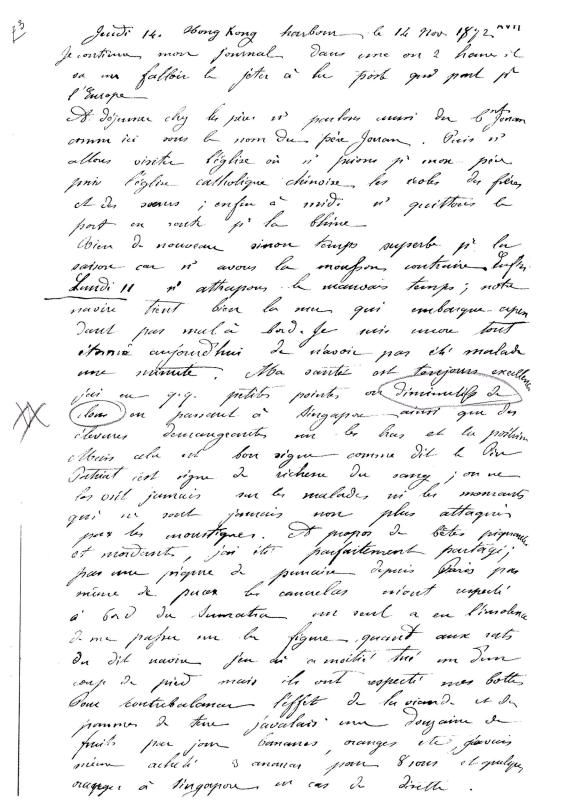 Jeudi 14. Hong Kong harbour le 14 Nov 1872
Je continue mon journal dans une ou 2 heures il
va me falloir le jeter à la poste qui part pr
l'Europe
et déjeuner chez les pères ns parlons aussi du Cnt Jouan
connu ici sous le nom du père Jouan. Puis ns
allons visiter l'église où ns prions pr mon père
puis l'église catholique chinoise les écoles des frères
et des sœurs ; enfin à midi ns quittons le
port en route pr la Chine
Rien de nouveau sinon temps superbe pr la
saison car ns avons la mousson contraire. Enfin
Lundi 11 ns attrapons le mauvais temps ; notre
navire tient bien la mer qui embarque cepen
dant pas mal à bord. Je suis encore tout
étonné aujourd'hui de n'avoir pas été malade
une minute. Ma santé est toujours excellente
j'ai eu q.q. petites pointes ou diminutifs de
clous en passant à Singapore ainsi que des
élevures démangeantes sur les bras et la poitrine
Mais cela est bon signe comme dit le Père
Patriat c'est signe de richesse du sang ; on ne
les voit jamais sur les malades ni les mourants
qui ne sont jamais non plus attaqués
par les moustiques. Et propos de bêtes piquantes
et mordants, j'ai été parfaitement partagé ;
pas une piqure de punaise depuis Paris pas
même de puces les cancrelas m'ont respecté
à bord du Sumatra un seul a eu l'insolence
de me passer sur la figure quant aux rats
du dit navire j'en ai à moitié tué un d'un
coup de pied mais ils ont respecté mes bottes
Pour contrebalancer l'effet de la viande et des
pommes de terre j'avalais une douzaine de
fruits par jour bananes, oranges etc, j'avais
même acheté 3 ananas pour 8 sous et quelques
oranges à Singapore en cas de disette.